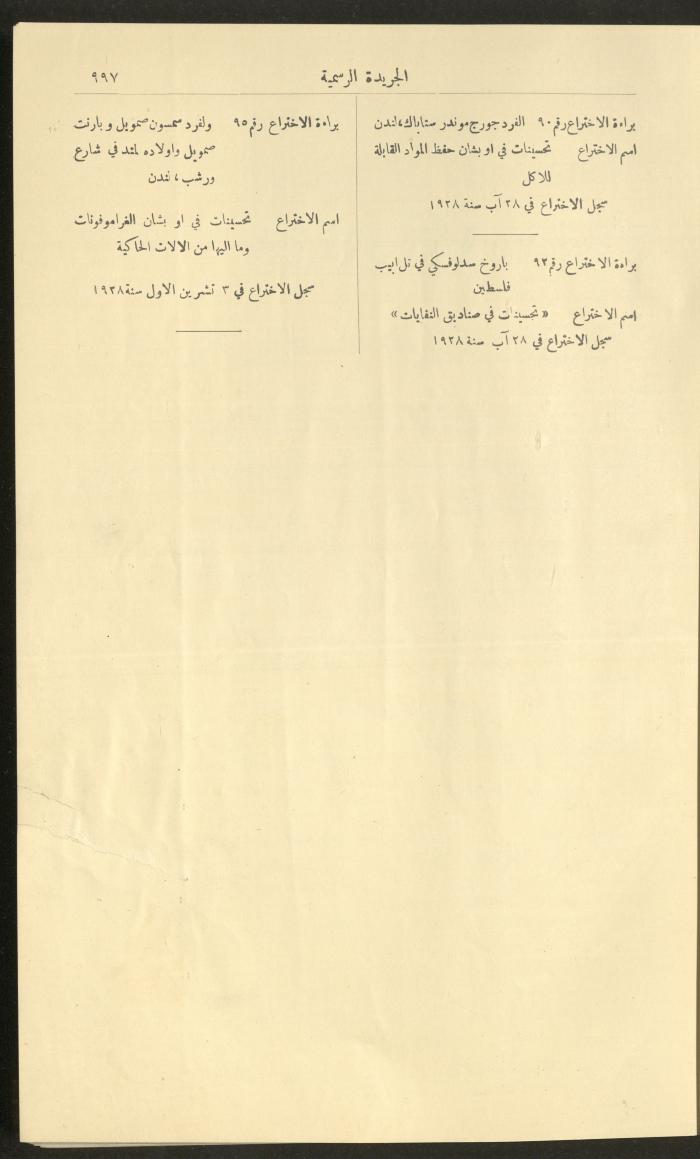 الجريدة الرسمية
٩٩٧
براءة الاختراع رقم ٩٠ الفرد جورج موندر ستاباك، لندن
اسم الاختراع تحسينات في او بشان حفظ المواد القابلة
للاكل
سجل الاختراع في ٢٨ آب سنة ١٩٢٨
براءة الاختراع رقم ٩٢ باروخ سدلوفسكي في تل ابيب
فلسطين
اسم الاختراع «تحسينات في صناديق النفايات»
سجل الاختراع في ٢٨ آب سنة ١٩٢٨
براءة الاختراع رقم ٩٥ ولفرد سمسون صمويل و بارنت
صمويل واولاده لمتد في شارع
ورشب، لندن
اسم الاختراع تحسينات في او بشان الغراموفونات
وما اليها من الالات الحاكية
سجل الاختراع في ٣ تشرين الاول سنة ١٩٢٨